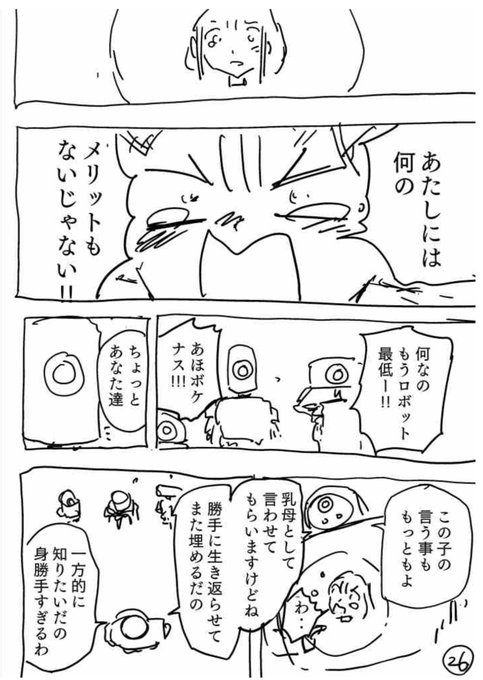 あたしには
何の
メリットも
ないじゃない!!
何なの
もうロボット
最低ー!!
あほボケ
ナス!!!
ちょっと
あなた達
この子の
言う事も
もっともよ
わ…
乳母として
言わせて
もらいますけどね
勝手に生き返らせて
また埋めるだの
一方的に
知りたいだの
身勝手すぎるわ
26